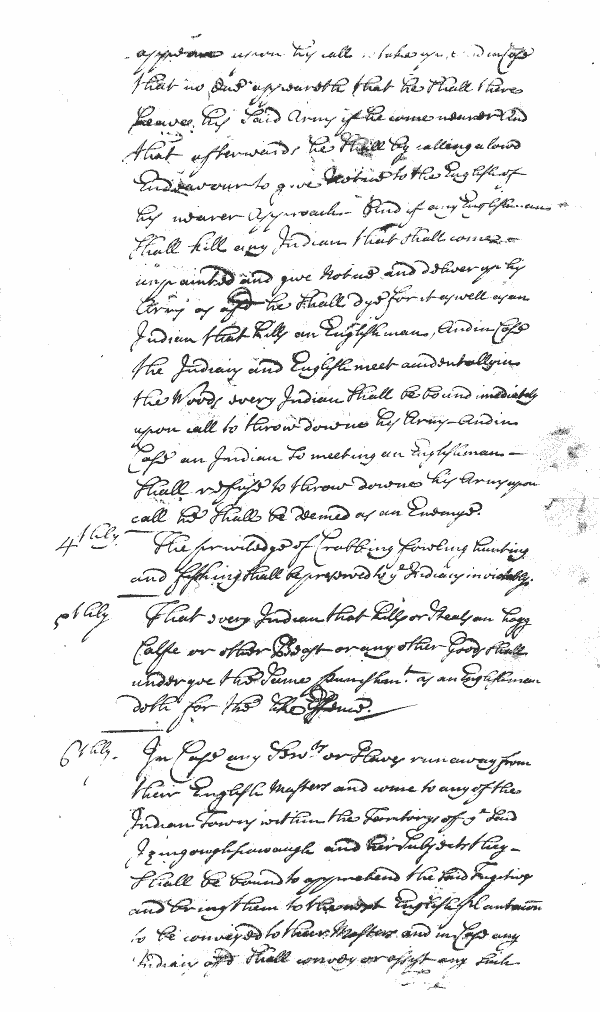 appeare upon his call to take up, and in Case
that no one appeareth that he shall there
leave his said Arms if he come nearer And
that afterwards he shall by calling alowd
Endeavour to give Notice to the English of
his nearer Approach And if any Englishman
shall kill any Indian that shall come
unpainted and give Notice and deliver up his
Arms as afd he shall dye for it as well as an
Indian that kills an Englishman, And in Case
the Indians and English meet accidentally in
the Woods every Indian shall be bound imediately
upon call to throw downe his Arms And in
Case an Indian so meeting an Englishman
shall refuse to throw downe his Arms upon
call he shall be deemed as an Enemye.
4thly. The priviledge of Crabbing fowling hunting
and fishing shall be preserved to ye Indians inviolably.
5thly That every Indian that kills or steals an hogg
Calfe or other Beast or any other Goods shall
undergoe the same punishmt. as an Englishman
doth for the like Offence.
6thly. In Case any Servts or Slaves run away from
their English Masters and come to any of the
Indian Towns within the Territory of ye said
and his Subjects they
shall be bound to apprehend the said Fugitives
and bring them to the next English Plantation
to be conveyed to their Masters and in Case any
Indians afd shall convey or assist any such